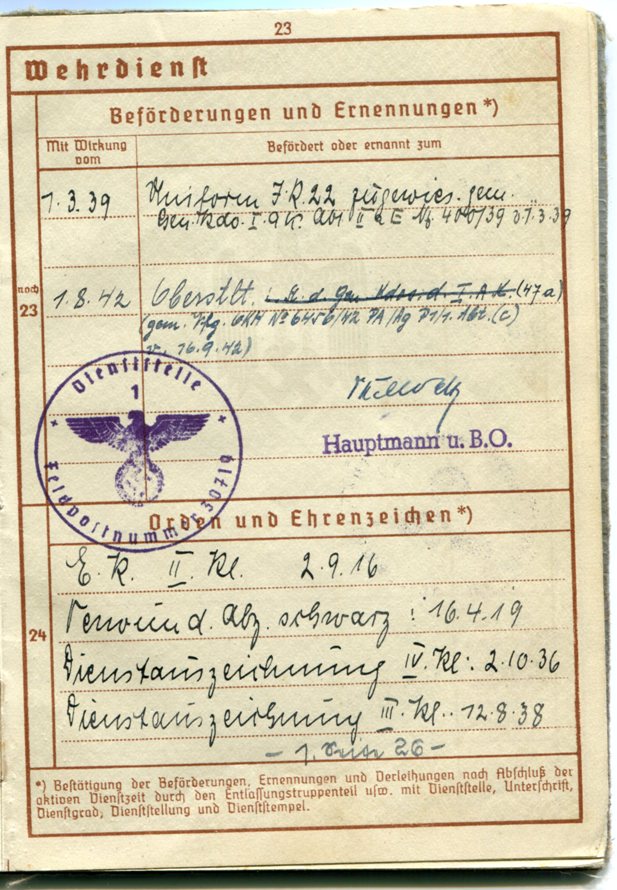 23
Wehrdienst
Beförderungen und Ernennungen *)
Mit Wirkung vom
Befördert oder ernannt zum
1.3.39 Uniform J.R.22 zugewies. gem.
Gen. Kdo. I. A.K. Abt II a E Nr. 400/39 v. 1.3.39
noch
23
1.8.42 Oberstlt. : K. d. Gen. Kdos. d. I. A.K. (47a)
(gem. Vfg. OKH No 6456/42 PA/Ag P1/1. Abt. (c)
v. 16.9.42)
Dienststelle
1
Feldpostnummer 30719
Hauptmann u. B.O.
Orden und Ehrenzeichen *)
E. K. II. Kl. 2.9.16
24
Verwund. Abz. schwarz : 16.4.19
Dienstauszeichnung IV. Kl: 2.10.36
Dienstauszeichnung III. Kl.. 12.8.38
- s. Seite 26 -
*) Bestätigung der Beförderungen, Ernennungen und Verleihungen nach Abschluß der
aktiven Dienstzeit durch den Entlassungstruppenteil usw. mit Dienststelle, Unterschrift,
Dienstgrad, Dienststellung und Dienststempel.